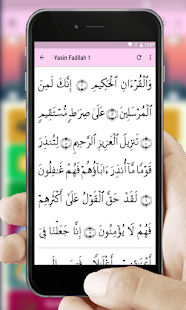 Yasin Fadilah 1
وَٱلْقُرْءَانِ ٱلْحَكِيمِ ۝ إِنَّكَ لَمِنَ
ٱلْمُرْسَلِينَ ۝ عَلَىٰ صِرَٰطٍ مُّسْتَقِيمٍ
۝ تَنزِيلَ ٱلْعَزِيزِ ٱلرَّحِيمِ ۝ لِتُنذِرَ
قَوْمًا مَّآ أُنذِرَ ءَابَآؤُهُمْ فَهُمْ غَٰفِلُونَ
۝ لَقَدْ حَقَّ ٱلْقَوْلُ عَلَىٰٓ أَكْثَرِهِمْ
فَهُمْ لَا يُؤْمِنُونَ ۝ إِنَّا جَعَلْنَا فِىٓ